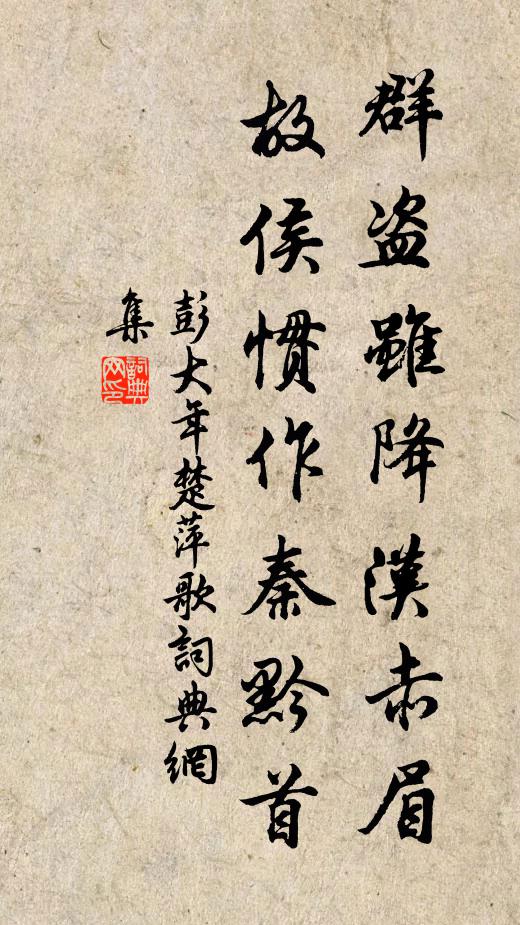 群盗雖降漢赤眉
故侯慣作秦黔首
彭大年楚萍歌詞典網
集
詞典
网印